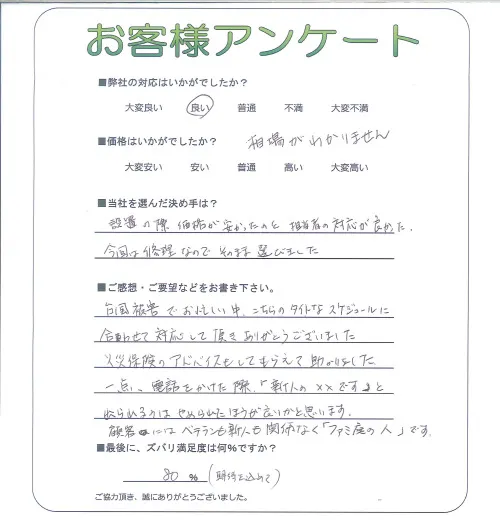 お客様アンケート
■弊社の対応はいかがでしたか？
大変良い 良い 普通 不満 大変不満
■価格はいかがでしたか？ 相場がわかりません
大変安い 安い 普通 高い 大変高い
■当社を選んだ決め手は？
設置の際 価格が安かったのと 担当者の対応が良かた.
今回は修理なので そのまま 選びました
■ご感想・ご要望などをお書き下さい。
台風被害でお忙しい中、こちらのタイトなスケジュールに
合わせて対応して頂きありがとうございました
火災保険のアドバイスもしてもらえて助かりました
一点、電話をかけた際、「新人の××です」と
なのられるのは やめられたほうが良いかと思います.
顧客にはベテランも新人も関係なく「ファミ庭の人」です.
■最後に、ズバリ満足度は何%ですか？
80 % (期待を込めて)
ご協力頂き、誠にありがとうございました。